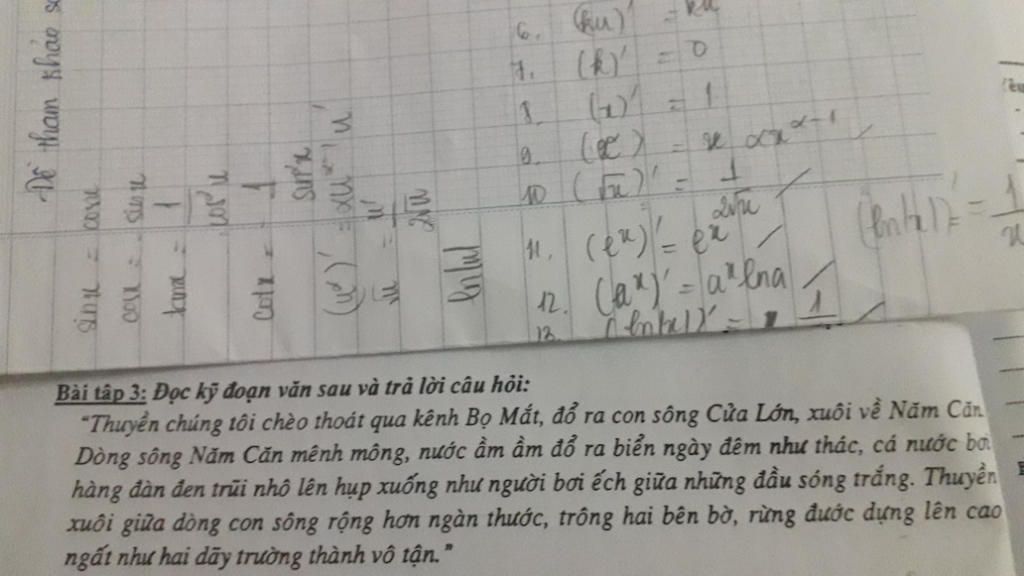 Đề tham khảo
sinx = cosx
cosx = - sinx
tanx = 1/cos²x
cotx = - 1/sin²x
(u^α)' = αu^(α-1) u'
√u = u'/2√u
ln|u|
6. (ku)' = ku
7. (k)' = 0
8. (x)' = 1
9. = αx^(α-1)
10 (√x)' = 1/2√x
11. (e^x)' = e^x
12. (a^x)' = a^x lna
13. (ln|x|)' = 1
(ln|x|)' = 1/x
Bài tập 3: Đọc kỹ đoạn văn sau và trả lời câu hỏi:
"Thuyền chúng tôi chèo thoát qua kênh Bọ Mắt, đổ ra con sông Cửa Lớn, xuôi về Năm Căn
Dòng sông Năm Căn mênh mông, nước ầm ầm đổ ra biển ngày đêm như thác, cá nước bơi
hàng đàn đen trũi nhô lên hụp xuống như người bơi ếch giữa những đầu sóng trắng. Thuyền
xuôi giữa dòng con sông rộng hơn ngàn thước, trông hai bên bờ, rừng đước dựng lên cao
ngất như hai dãy trường thành vô tận."